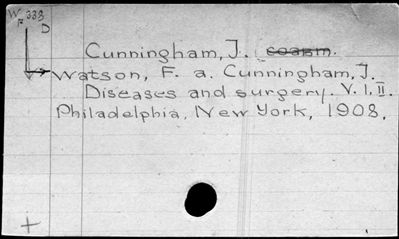 W 333
F
D
Cunningham, J.
Watson, F. a. Cunningham, J.
Diseases and surgery. V. I, II.
Philadelphia, New York, 1908.